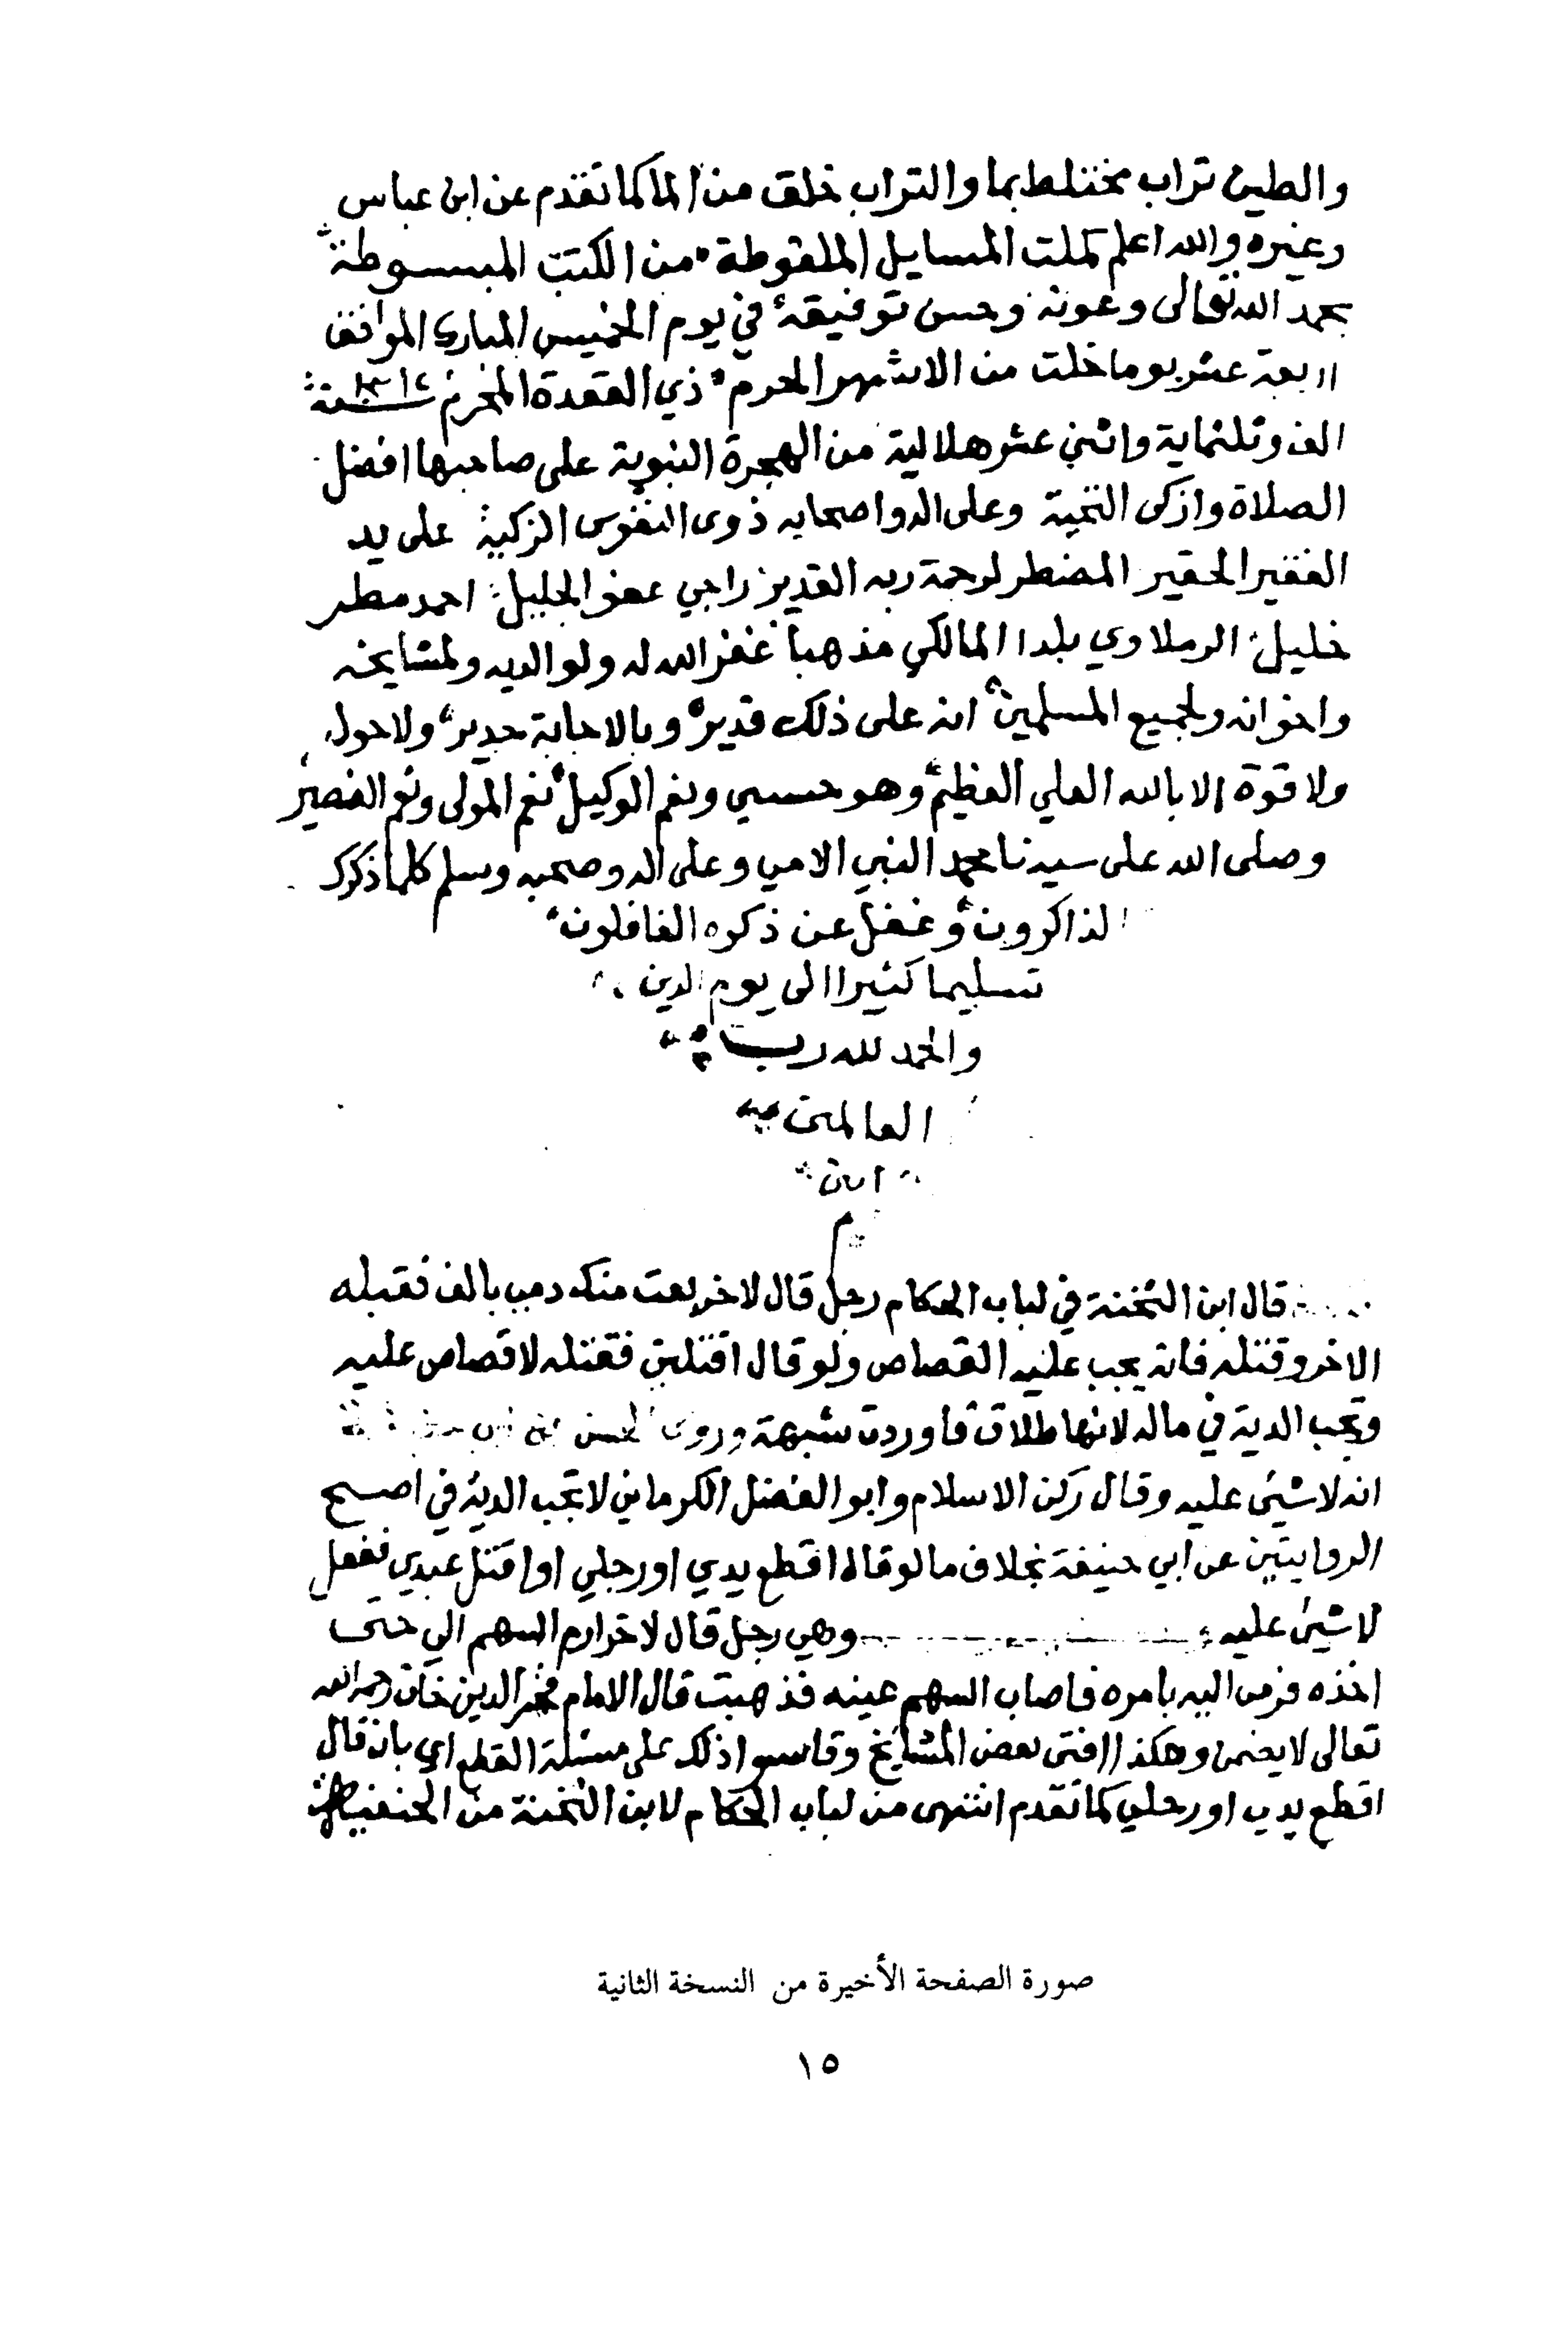 والطين تراب مختلط بما والتراب خلق من الما كما تقدم عن ابن عباس
وغيره والله اعلم كملت المسايل الملقوطة من الكتب المبسوطة
بحمد الله تعالى وعونه وحسن توفيقه في يوم الخميس المبارك الموافق
اربعة عشر يوما خلت من الاشهر الحرم ذي القعدة المحرم ١٣١٢ سنة
الف وثلثماية واثنى عشر هلالية من الهجرة النبوية على صاحبها افضل
الصلاة وازكى التحية وعلى اله واصحابه ذوى النفوس الزكية على يد
الفقير الحقير المضطر لرحمة ربه القدير راجي عفو الجليل احمد مطر
خليل الرملاوي بلدا المالكي مذهبا غفر الله له ولوالديه ولمشايخه
واخوانه ولجميع المسلمين انه على ذلك قدير وبالاجابة جدير ولا حول
ولا قوة الا بالله العلي العظيم وهو حسبي ونعم الوكيل نعم المولى ونعم النصير
وصلى الله على سيدنا محمد النبي الامي وعلى اله وصحبه وسلم كلما ذكرك
الذاكرون وغفل عن ذكره الغافلون
تسليما كثيرا الى يوم الدين
والحمد لله رب
العالمين
امين
م
قال ابن الشحنة في لباب الحكام رجل قال لاخر بعت منك دمي بالف فقبله
الاخر وقتله فانه يجب عليه القصاص ولو قال اقتلني فقتله لا قصاص عليه
وتجب الدية في ماله لانها طلاق فاوردت شبهة وروى الحسن عن ابي
انه لا شيئ عليه وقال ركن الاسلام وابو الفضل الكرماني لا تجب الدية في اصح
الروايتين عن ابي حنيفة بخلاف ما لو قال اقطع يدي او رجلي او اقتل عبدي ففعل
لا شيئ عليه وهي رجل قال لاخر ارم السهم الي حتى
اخذه فرمى اليه بامره فاصاب السهم عينه فذهبت قال الامام فخر الدين خان رحمه الله
تعالى لا يضمن وهكذا افتى بعض المشايخ وقاسوا ذلك على مسئلة القطع اي بان قال
اقطع يدي او رجلي كما تقدم انتهى من لباب الحكام لابن الشحنة من الحنفية
صورة الصفحة الأخيرة من النسخة الثانية
١٥